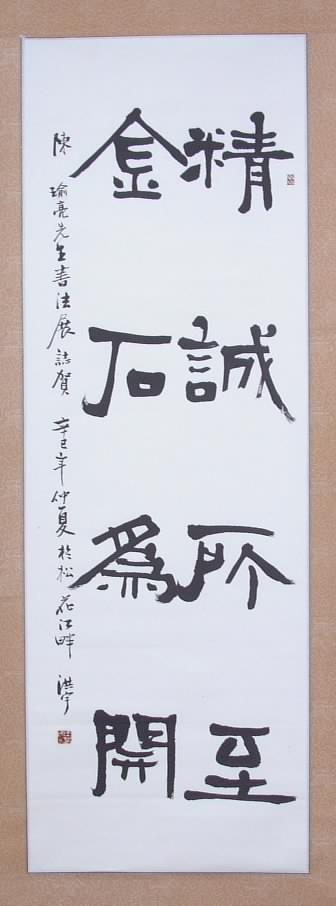 精誠所至
金石為開
陳瑜亮先生書法展誌賀 辛巳年仲夏於松花江畔 洪宇